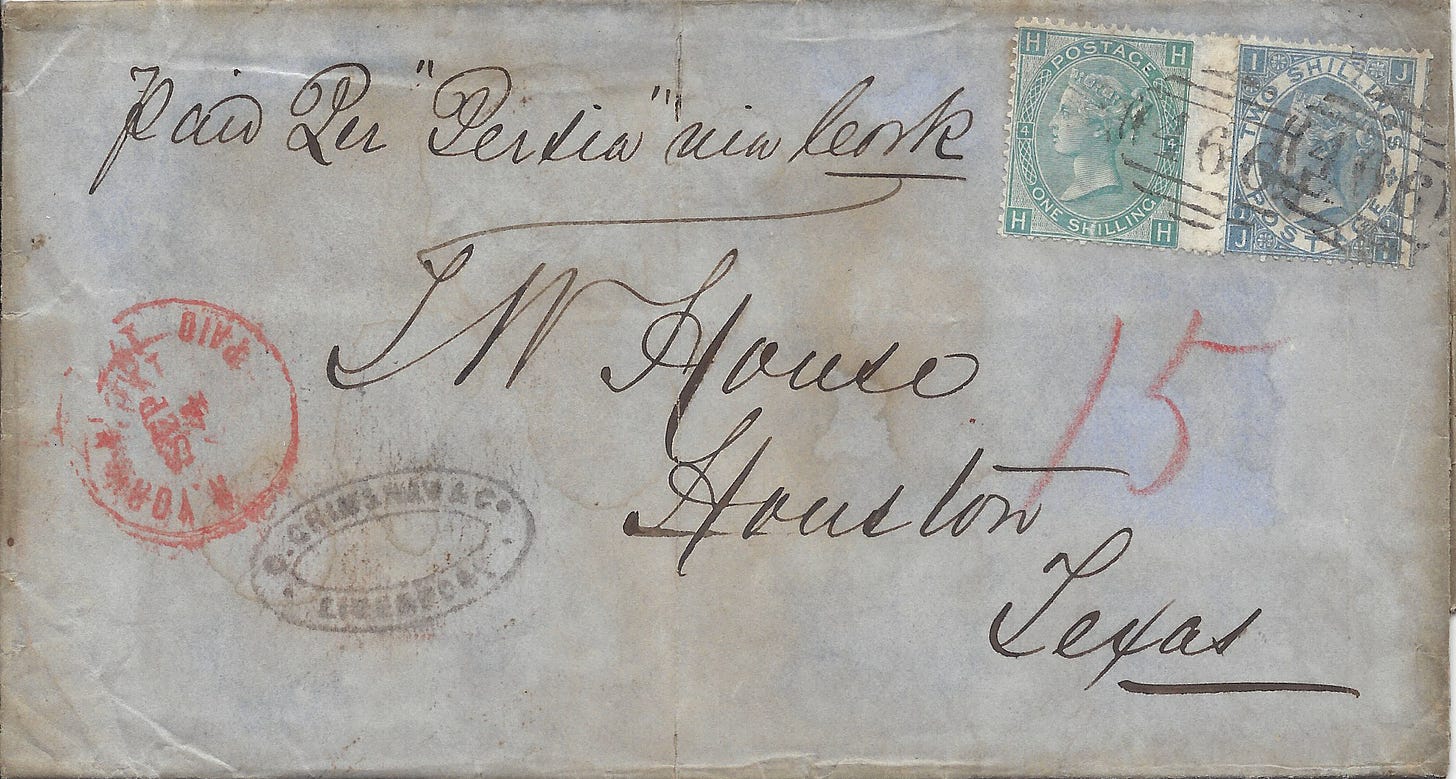 Paid Per "Persia" via Cork
H POSTAGE H
4
ONE SHILLING
H H
I TWO SHILLINGS J
POSTAGE
J I
466
466
J W House
15
Houston
Texas
N. YORK AM. PKT.
SEP
4
PAID
GRIMSHAW & Co
LIVERPOOL